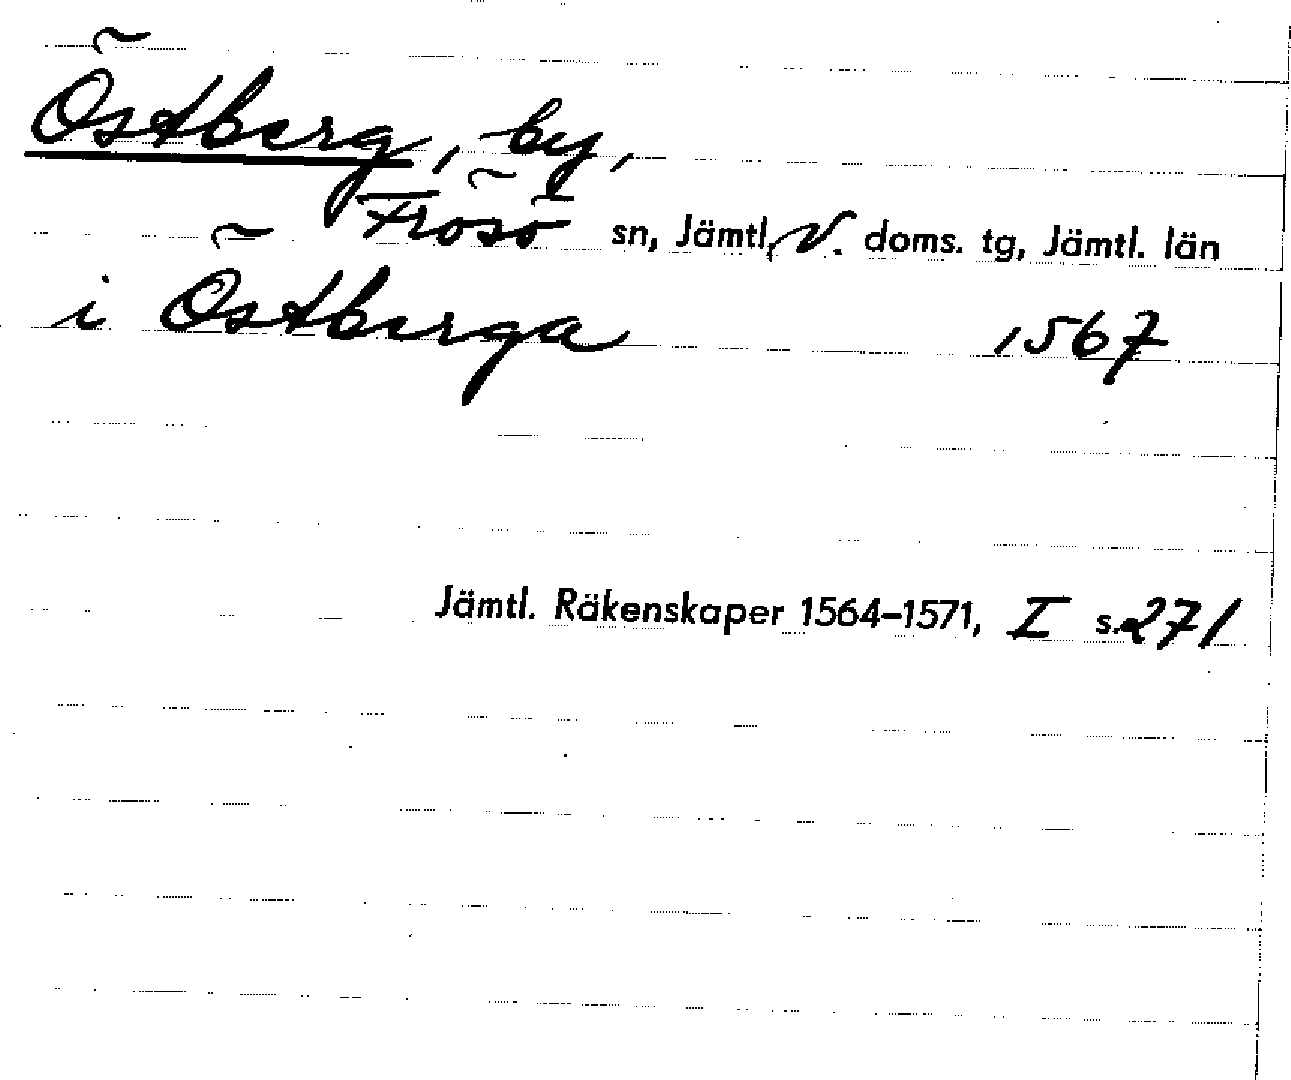 Östberg, by,
Frösö sn, Jämtl, V. doms. tg, Jämtl. län
i Östberga 1567
Jämtl. Räkenskaper 1564–1571, I s. 271